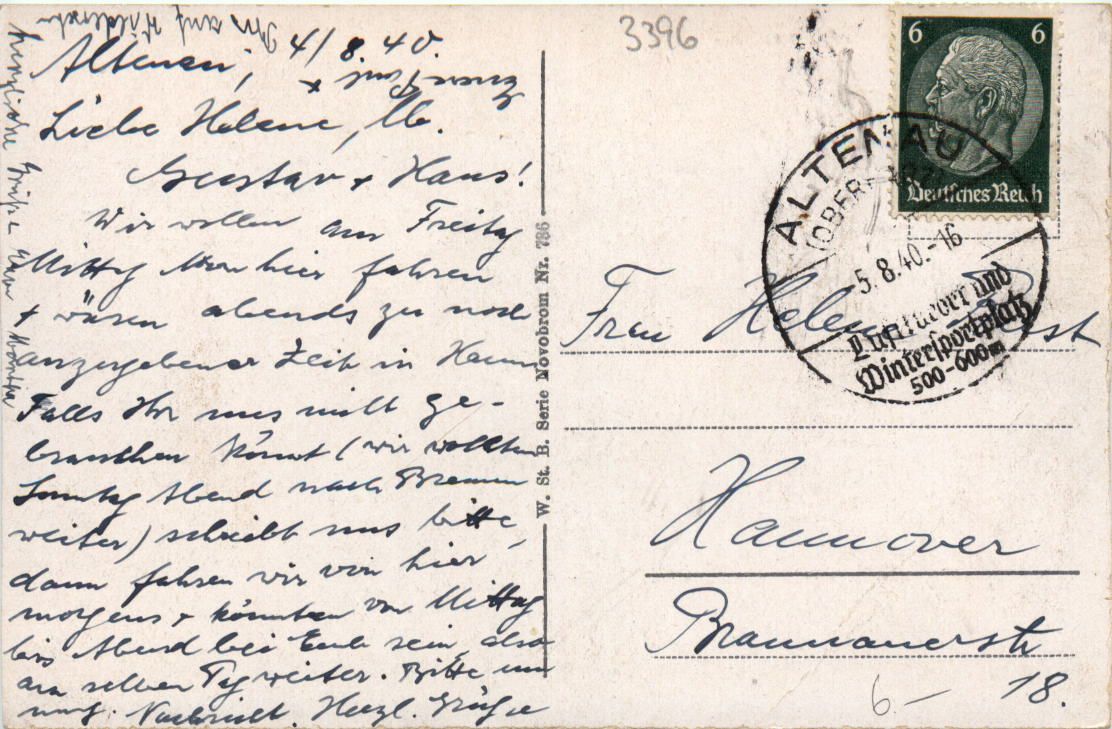 Altenau, 4/8.40.
Liebe Helene, lb.
Gustav + Hans!
Wir wollen am Freitag
Mittag von hier fahren
+ wären abends zu noch
anzugebener Zeit in Hann
Falls Ihr uns nicht ge-
brauchen könnt (wir wollten
Sonntag Abend nach Bremen
weiter) schreibt uns bitte,
dann fahren wir von hier
morgens + könnten von Mittag
bis Abend bei Euch sein, also
am selben Tag weiter. Bitte um
umg. Nachricht. Herzl. Grüße
Herzliche Grüße
+ Martha
W. St. B. Serie Novobrom Nr. 736
3396
6 6
Deutsches Reich
ALTENAU
(OBERHARZ)
-5.8.40.-16
Luftkurort und
Wintersportplatz
500-600m
Frau Helene
Hannover
Braunauerstr
18.
6.-